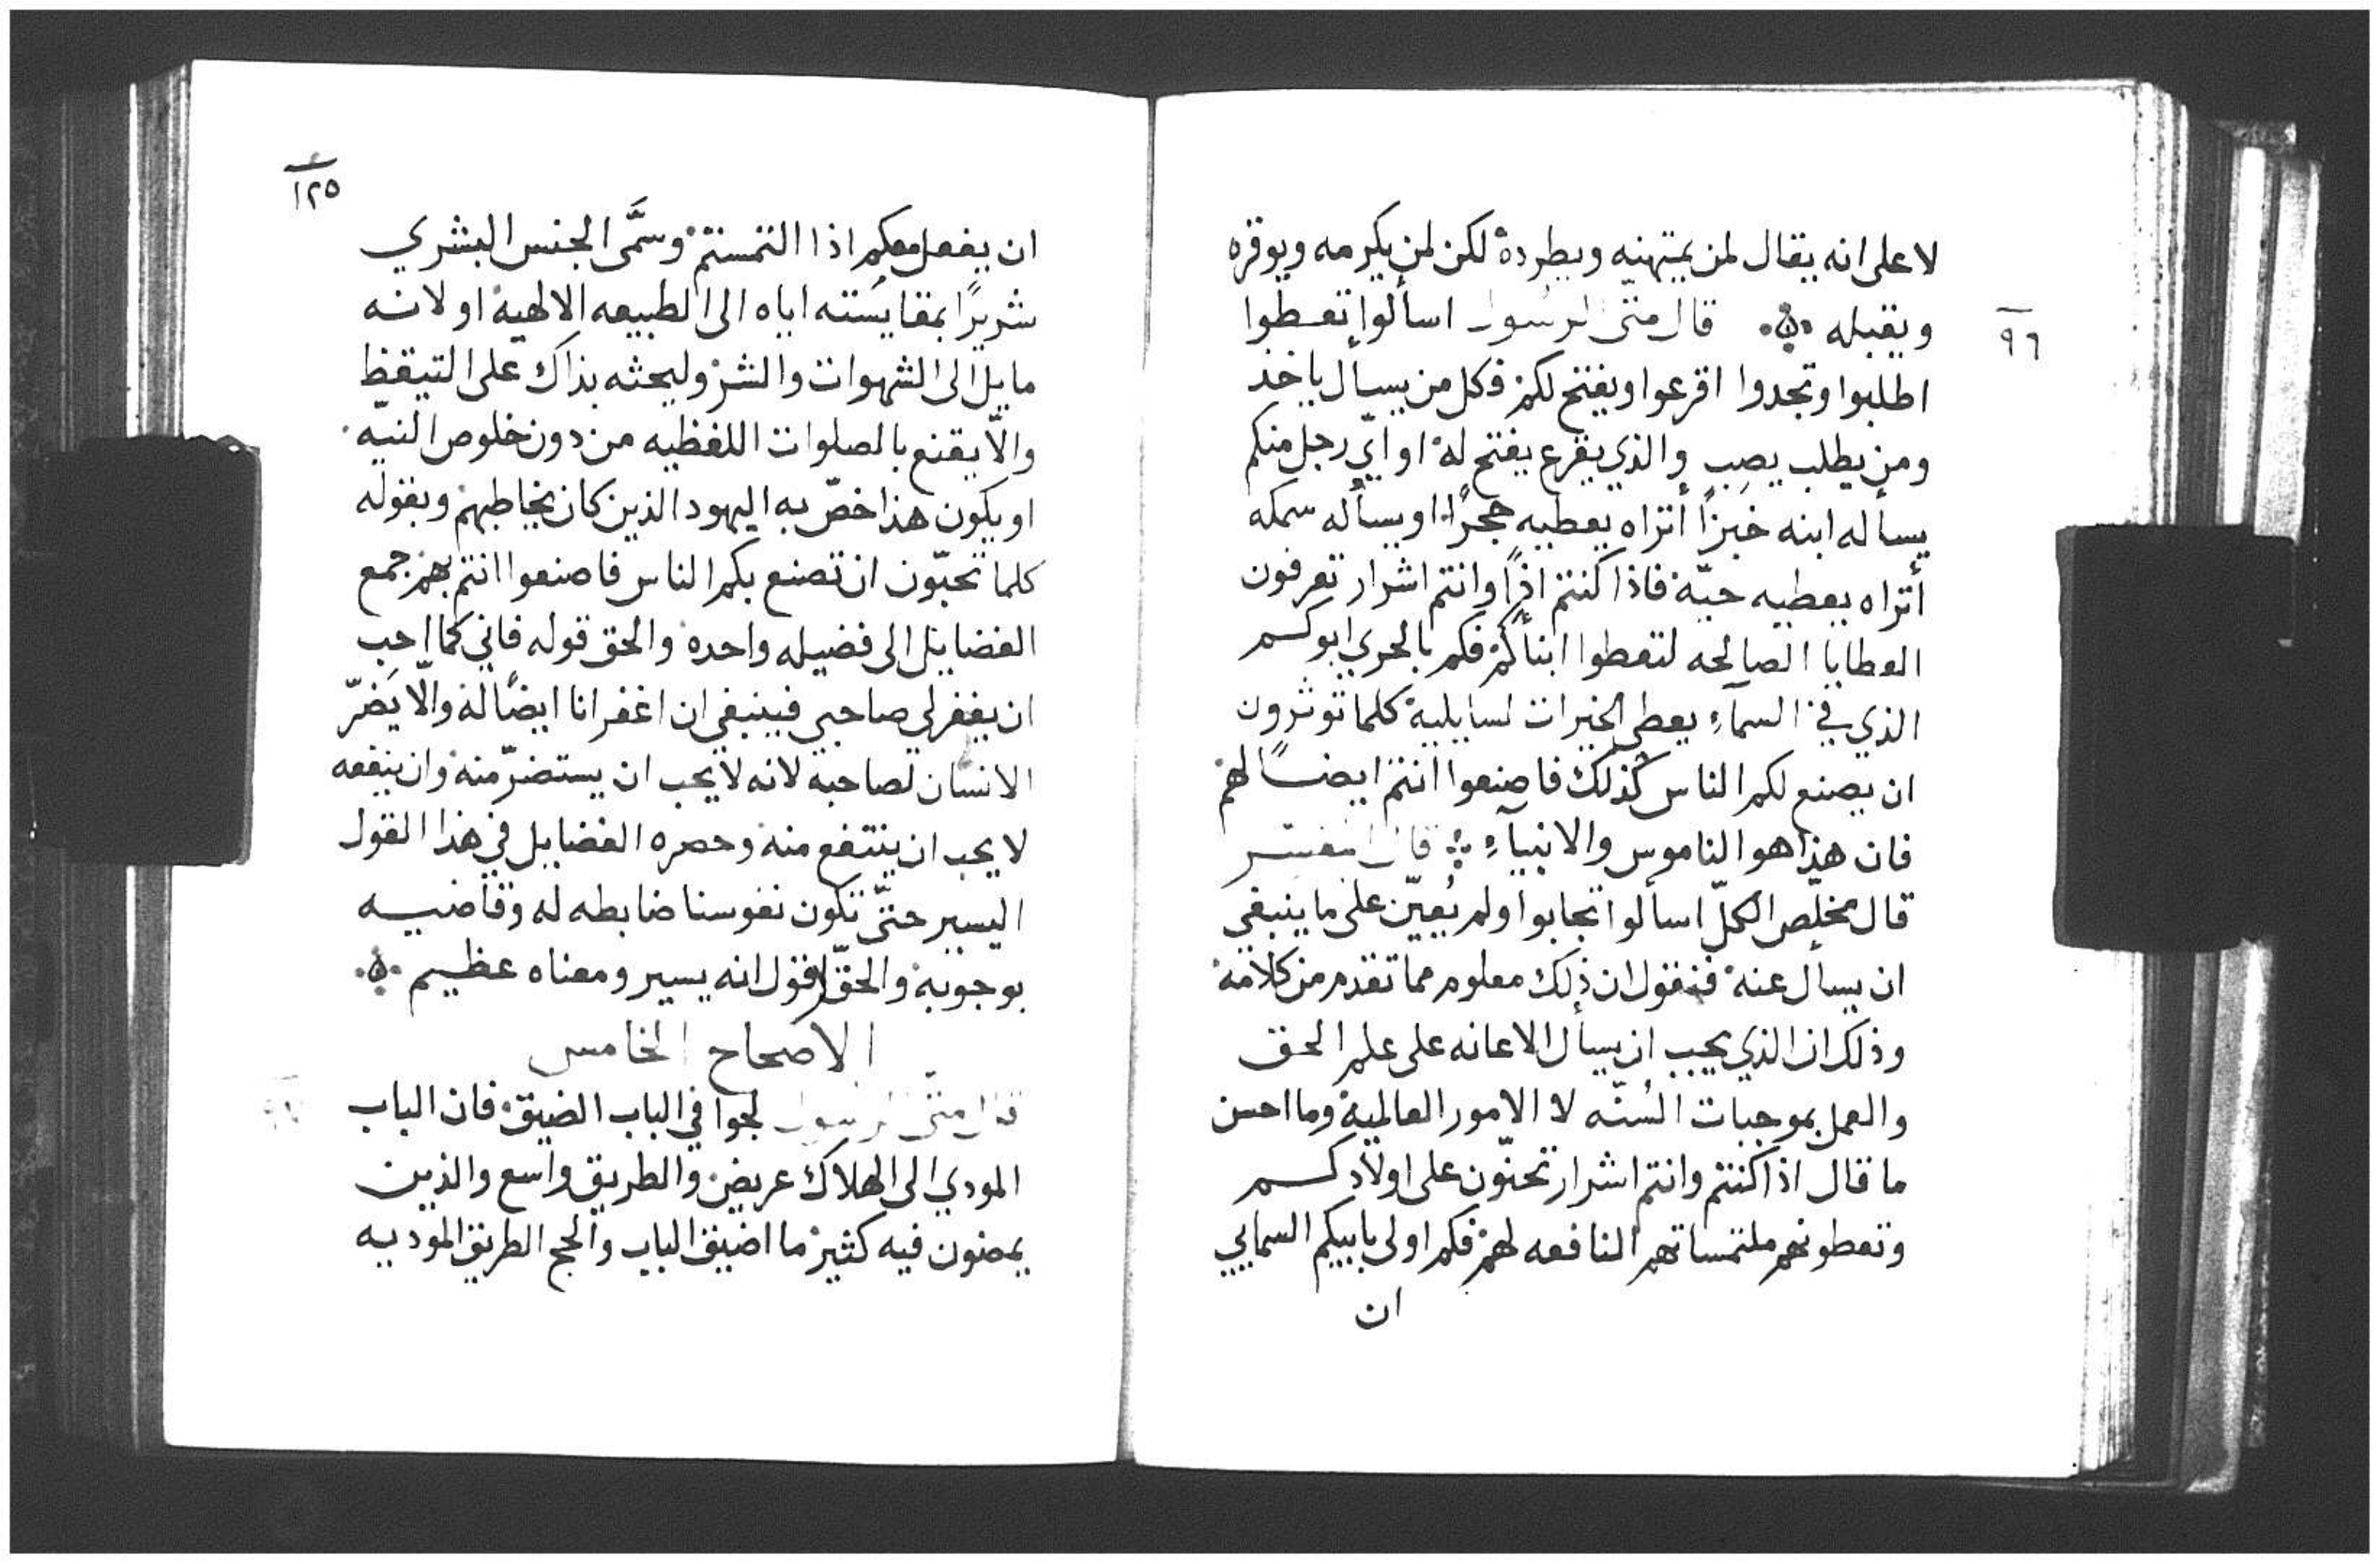 لا على انه يقال لمن يمتهنه ويطرده لكن لمن يكرمه ويوقره
ويقبله قال متى الرسول اسألوا تعطوا
٩٦
اطلبوا وتجدوا اقرعوا ويفتح لكم فكل من يسأل ياخذ
ومن يطلب يصب والذي يقرع يفتح له او ايّ رجل منكم
يسأله ابنه خبزًا أتراه يعطيه حجرًا او يسأله سمكه
أتراه يعطيه حيّة فاذا كنتم اذًا وانتم اشرار تعرفون
العطايا الصالحه لتعطوا ابنأكم فكم بالحري ابوكم
الذي في السمآء يعطي الخيرات لسايليه كلما توثرون
ان يصنع لكم الناس كذلك فاصنعوا انتم ايضًا لهم
فان هذا هو الناموس والانبيآء قال المفسر
قال مخلّص الكلّ اسألوا تجابوا ولم يُعيّن على ما ينبغي
ان يسأل عنه فنقول ان ذلك معلوم مما تقدم من كلامه
وذلك ان الذي يجب ان يسأل الاعانه على علم الحق
والعمل بموجبات السُنّه لا الامور العالمية وما احسن
ما قال اذا كنتم وانتم اشرار تحنّون على اولادكم
وتعطونهم ملتمساتهم النافعه لهم فكم اولى بابيكم السمايي
ان
١٢٥
ان يفعل معكم اذا التمستم وسمَّى الجنس البشري
شريرًا بمقايسته اياه الى الطبيعه الالهية او لانه
مايل الى الشهوات والشر وليحثه بذاك على التيقظ
والّا يقنع بالصلوات اللفظيه من دون خلوص النيّه
او يكون هذا خصّ به اليهود الذين كان يخاطبهم وبقوله
كلما تحبّون ان تصنع بكم الناس فاصنعوا انتم بهم جمع
الفضايل الى فضيله واحده والحق قوله فاني كما احب
ان يغفر لي صاحبي فينبغي ان اغفر انا ايضًا له والّا يَضرّ
الانسان لصاحبه لانه لا يجب ان يستضرّ منه وان ينفعه
لا يجب ان ينتفع منه وحصره الفضايل في هذا القول
اليسير حتّى تكون نفوسنا ضابطه له وقاضيه
بوجوبه والحقّ اقول انه يسير ومعناه عظيم
الاصحاح الخامس
قال متّى الرسول لجوا في الباب الضيق فان الباب
المودي الى الهلاك عريض والطريق واسع والذين
يمضون فيه كثير ما اضيق الباب والحج الطريق الموديه